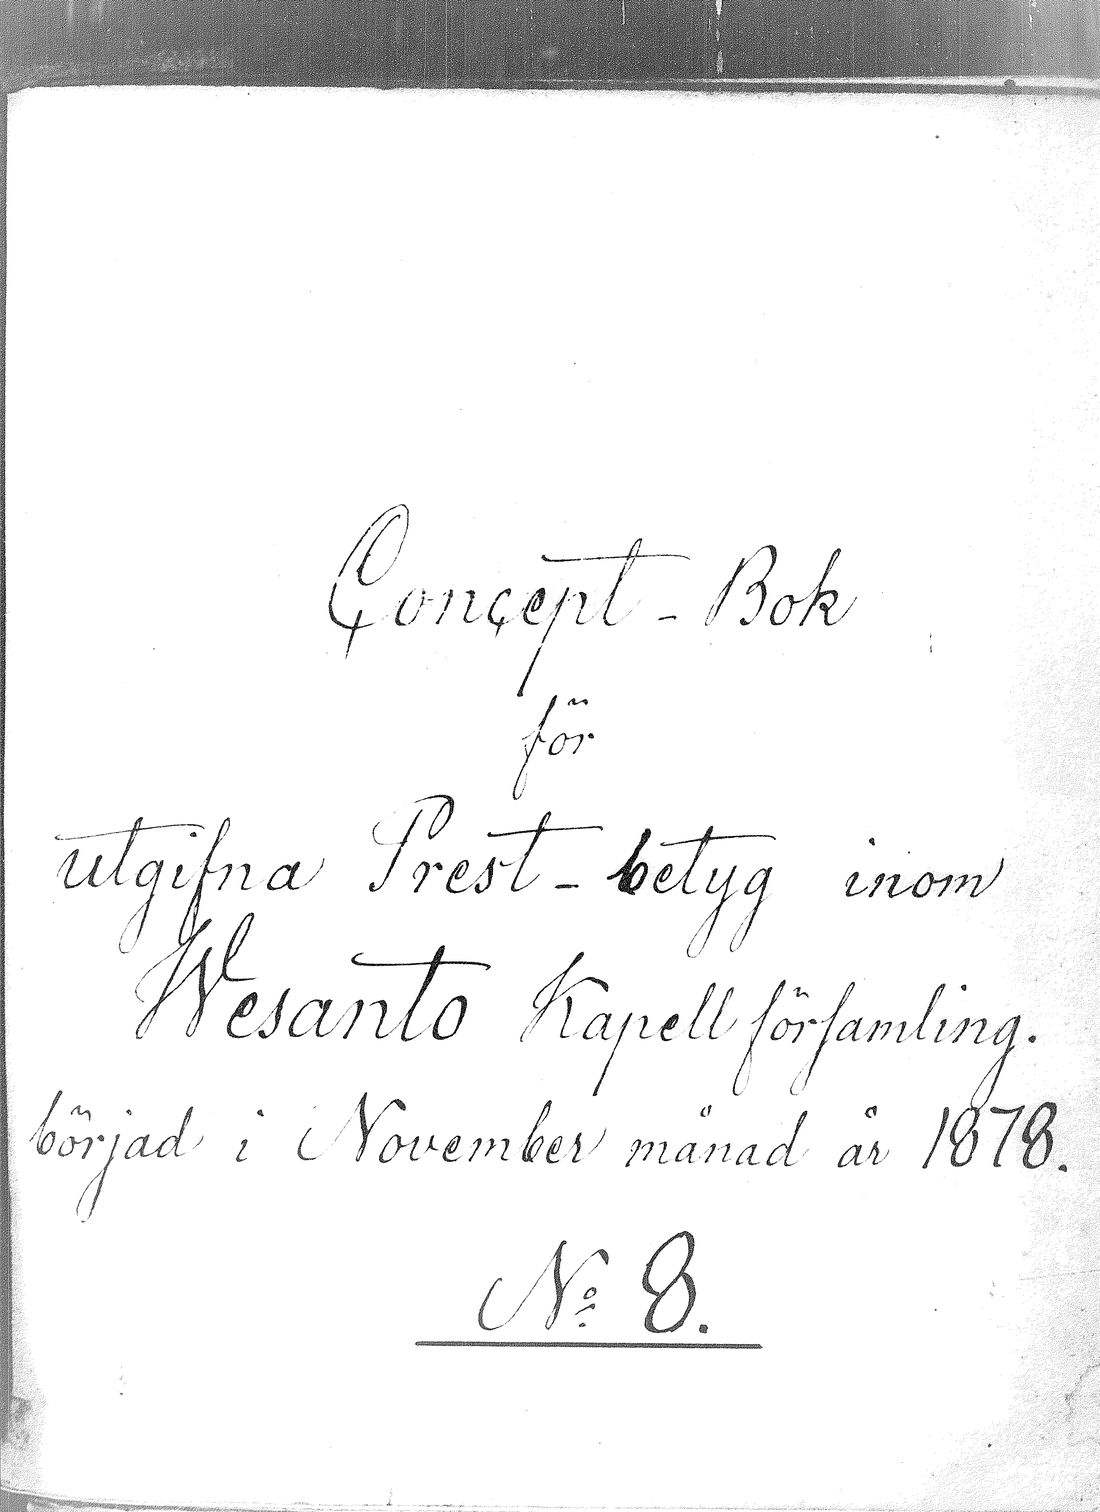 Concept - Bok
för
utgifna Prest - betyg inom
Wesanto Kapell församling.
börjad i November månad år 1878.
No 8.